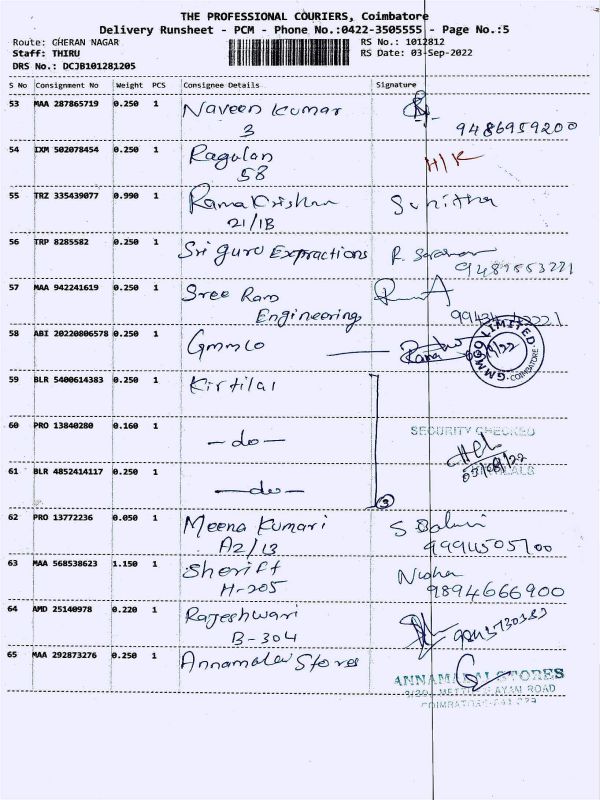 THE PROFESSIONAL COURIERS, Coimbatore
Delivery Runsheet - PCM - Phone No.:0422-3505555 - Page No.:5
Route: CHERAN NAGAR
RS No.: 1012812
Staff: THIRU
RS Date: 03-Sep-2022
DRS No.: DCJB101281205
S No Consignment No Weight PCS Consignee Details Signature
53 MAA 287865719 0.250 1 Naveen Kumar
3 9486959200
54 IXM 502078454 0.250 1 Ragulan H/K
58
55 TRZ 335439077 0.990 1 Rama Krishnan Sunitha
21/1B
56 TRP 8285582 0.250 1 Sri Guru Expractions R.
57 MAA 942241619 0.250 1 Sree Ram
Engineering
58 ABI 20220806578 0.250 1 Gmmco
GMMCO LIMITED COIMBATORE
59 BLR 5400614383 0.250 1 Kirtilal
60 PRO 13840280 0.160 1 - do - SECURITY CHECKED
61 BLR 4852414117 0.250 1 - do -
62 PRO 13772236 0.050 1 Meena Kumari S
A2/13 9994505700
63 MAA 568538623 1.150 1 Sheriff Nisha
H-205 9894666900
64 AMD 25140978 0.220 1 Rajeshwari
B-304
65 MAA 292873276 0.250 1 Annamalai Stores
ANNAMALAI STORES
ROAD